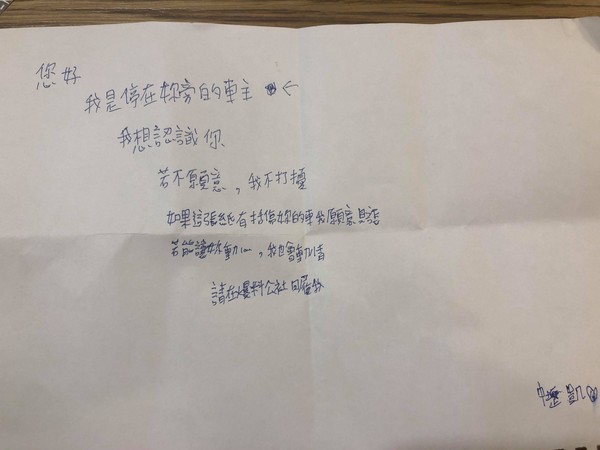 您好
我是停在妳旁的車主 ←
我想認識你
若不願意，我不打擾
如果這張紙有搞傷妳的車我願意具請
若能讓妳動心，我也會動情
請在爆料公社回覆我
凱